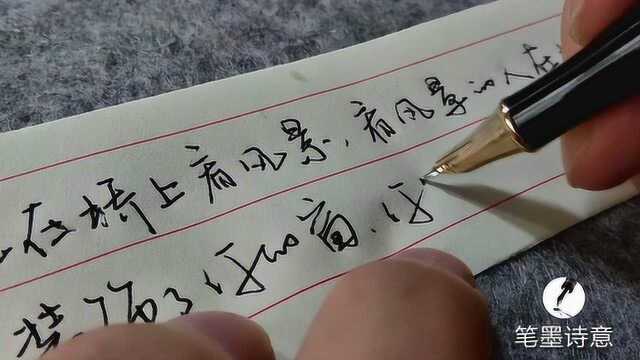 在桥上看风景,看风景的人在
装饰了你的窗,你
笔墨诗意